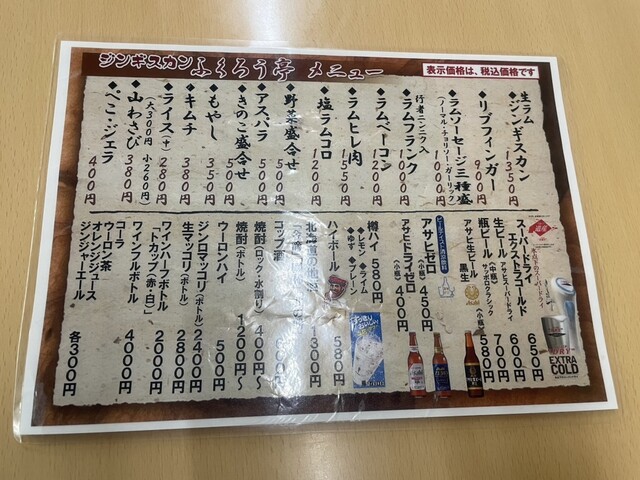 ジンギスカン ふくろう亭 メニュー
表示価格は、税込価格です
◆生ラムジンギスカン 1350円
◆リブフィンガー 900円
◆ラムソーセージ三種盛 1000円
(ノーマル・チョリソー・ガーリック)
行者ニンニク入
◆ラムフランク 1000円
◆ラムベーコン 1200円
◆ラムヒレ肉 1550円
◆塩ラムコロ 1200円
◆野菜盛合せ 500円
◆アスパラ 500円
◆きのこ盛合せ 500円
◆もやし 350円
◆キムチ 380円
◆ライス(中) 280円
(大300円 小260円)
◆山わさび 380円
◆ぺこ・ジェラ 400円
スーパードライ
エクストラコールド 650円
生ビール 600円
アサヒスーパードライ
瓶ビール 〈中瓶〉 700円
サッポロクラシック
〈小瓶〉 580円
アサヒ生ビール 黒生
ビールテイスト清涼飲料
アサヒゼロ 〈小瓶〉 450円
アサヒドライゼロ 〈小瓶〉 400円
樽ハイ 580円
◆レモン ◆ライム
◆ゆず ◆プレーン
ハイボール 580円
北海道の地酒 1300円
コップ酒 500円
焼酎(ロック・水割り) 400円〜
焼酎(ボトル) 1200円〜
ウーロンハイ 500円
ジンロマッコリ(ボトル) 2400円
生マッコリ(ボトル) 2800円
ワインハーフボトル 2000円
「トカップ(赤・白)」
ワインフルボトル 4000円
コーラ
ウーロン茶
オレンジジュース
ジンジャーエール 各300円
EXTRA
COLD